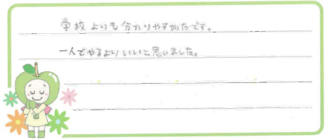 学校よりも分かりやすかたです。
一人でやるよりいいと思いました。